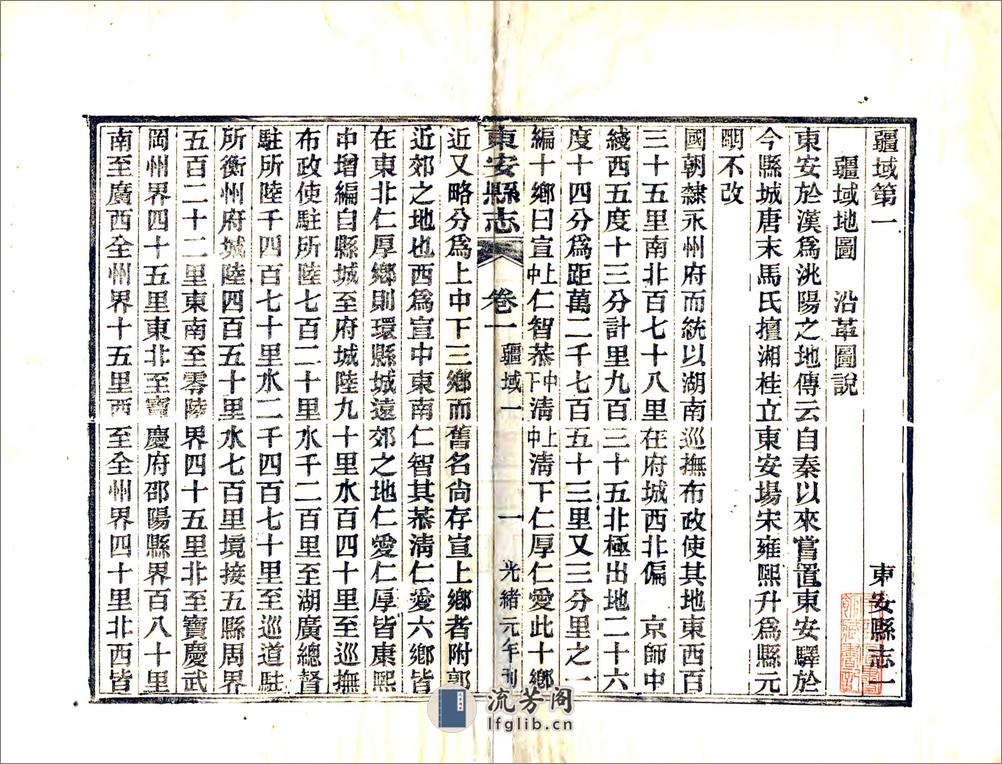 疆域第一 東安縣志一
疆域地圖 沿革圖說
東安於漢爲洮陽之地傳云自秦以來嘗置東安驛於
今縣城唐末馬氏擅湘桂立東安場宋雍熙升爲縣元
明不改
國朝隸永州府而統以湖南巡撫布政使其地東西百
三十五里南北百七十八里在府城西北偏 京師中
綫西五度十三分計里九百三十五北極出地二十六
度十四分爲距萬二千七百五十三里又三分里之一
編十鄉曰宣上中仁智恭中下清上中清下仁厚仁愛此十鄉
東安縣志 卷一 疆域一 一 光緒元年刊
近又略分爲上中下三鄉而舊名尙存宣上鄉者附郭
近郊之地也西爲宣中東南仁智其恭清仁愛六鄉皆
在東北仁厚鄉則環縣城遠郊之地仁愛仁厚皆康熙
中增編自縣城至府城陸九十里水百四十里至巡撫
布政使駐所陸七百二十里水千二百里至湖廣總督
駐所陸千四百七十里水二千四百七十里至巡道駐
所衡州府城陸四百五十里水七百里境接五縣周界
五百二十二里東南至零陵界四十五里北至寶慶武
岡州界四十五里東北至寶慶府邵陽縣界百八十里
南至廣西全州界十五里西至全州界四十里北西皆
流芳阁
lfglib.cn